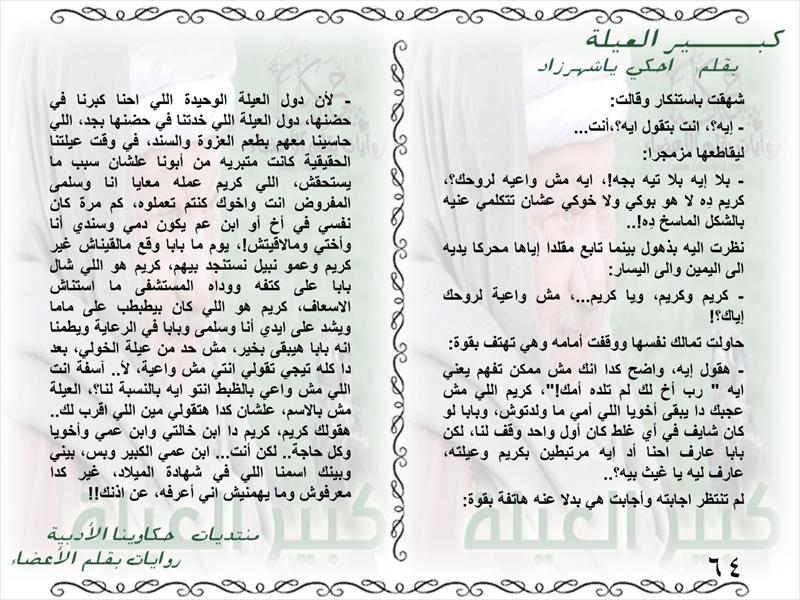 كبـــــــير العيلة
بقلم احكي ياشهرزاد
شهقت باستنكار وقالت:
- إيه؟، انت بتقول ايه؟،أنت...
ليقاطعها مزمجرا:
- بلا إيه بلا تيه بجه!، ايه مش واعيه لروحك؟،
كريم ده لا هو بوكي ولا خوكي عشان تتكلمي عنيه
بالشكل الماسخ ده!..
نظرت اليه بذهول بينما تابع مقلدا إياها محركا يديه
الى اليمين والى اليسار:
- كريم وكريم، ويا كريم...، مش واعية لروحك
إياك؟!
حاولت تمالك نفسها ووقفت أمامه وهي تهتف بقوة:
- هقول إيه، واضح كدا انك مش ممكن تفهم يعني
ايه " رب أخ لك لم تلده أمك!"، كريم اللي مش
عجبك دا يبقى أخويا اللي أمي ما ولدتوش، وبابا لو
كان شايف في أي غلط كان أول واحد وقف لنا، لكن
بابا عارف احنا أد إيه مرتبطين بكريم وعيلته،
عارف ليه يا غيث بيه؟..
لم تنتظر اجابته وأجابت هي بدلا عنه هاتفة بقوة:
- لأن دول العيلة الوحيدة اللي احنا كبرنا في
حضنها، دول العيلة اللي خدتنا في حضنها بجد، اللي
حاسينا معهم بطعم العزوة والسند، في وقت عيلتنا
الحقيقية كانت متبريه من أبونا علشان سبب ما
يستحقش، اللي كريم عمله معايا انا وسلمى
المفروض انت واخوك كنتم تعملوه، كم مرة كان
نفسي في أخ أو ابن عم يكون دمي وسندي أنا
وأختي ومالاقيتش!، يوم ما بابا وقع مالقيناش غير
كريم وعمو نبيل نستنجد بيهم، كريم هو اللي شال
بابا على كتفه ووداه المستشفى ما استناش
الاسعاف، كريم هو اللي كان بيطبطب على ماما
ويشد على ايدي أنا وسلمى وبابا في الرعاية ويطمنا
انه بابا هيبقى بخير، مش حد من عيلة الخولي، بعد
دا كله تيجي تقولي انتي مش واعية، لأ.. آسفة انت
اللي مش واعي بالظبط انتو ايه بالنسبة لنا؟، العيلة
مش بالاسم، علشان كدا هتقولي مين اللي اقرب لك..
هقولك كريم، كريم دا ابن خالتي وابن عمي وأخويا
وكل حاجة.. لكن أنت... ابن عمي الكبير وبس، بيني
وبينك اسمنا اللي في شهادة الميلاد، غير كدا
معرفوش وما يهمنيش اني أعرفه، عن اذنك!!
كبير العيلة
كبير العيلة
منتديات حكاوينا الأدبية
روايات بقلم الأعضاء
٦٤